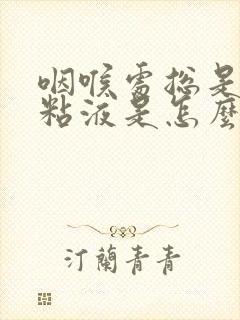 咽喉處總是
粘液是怎麼
汀蘭青青